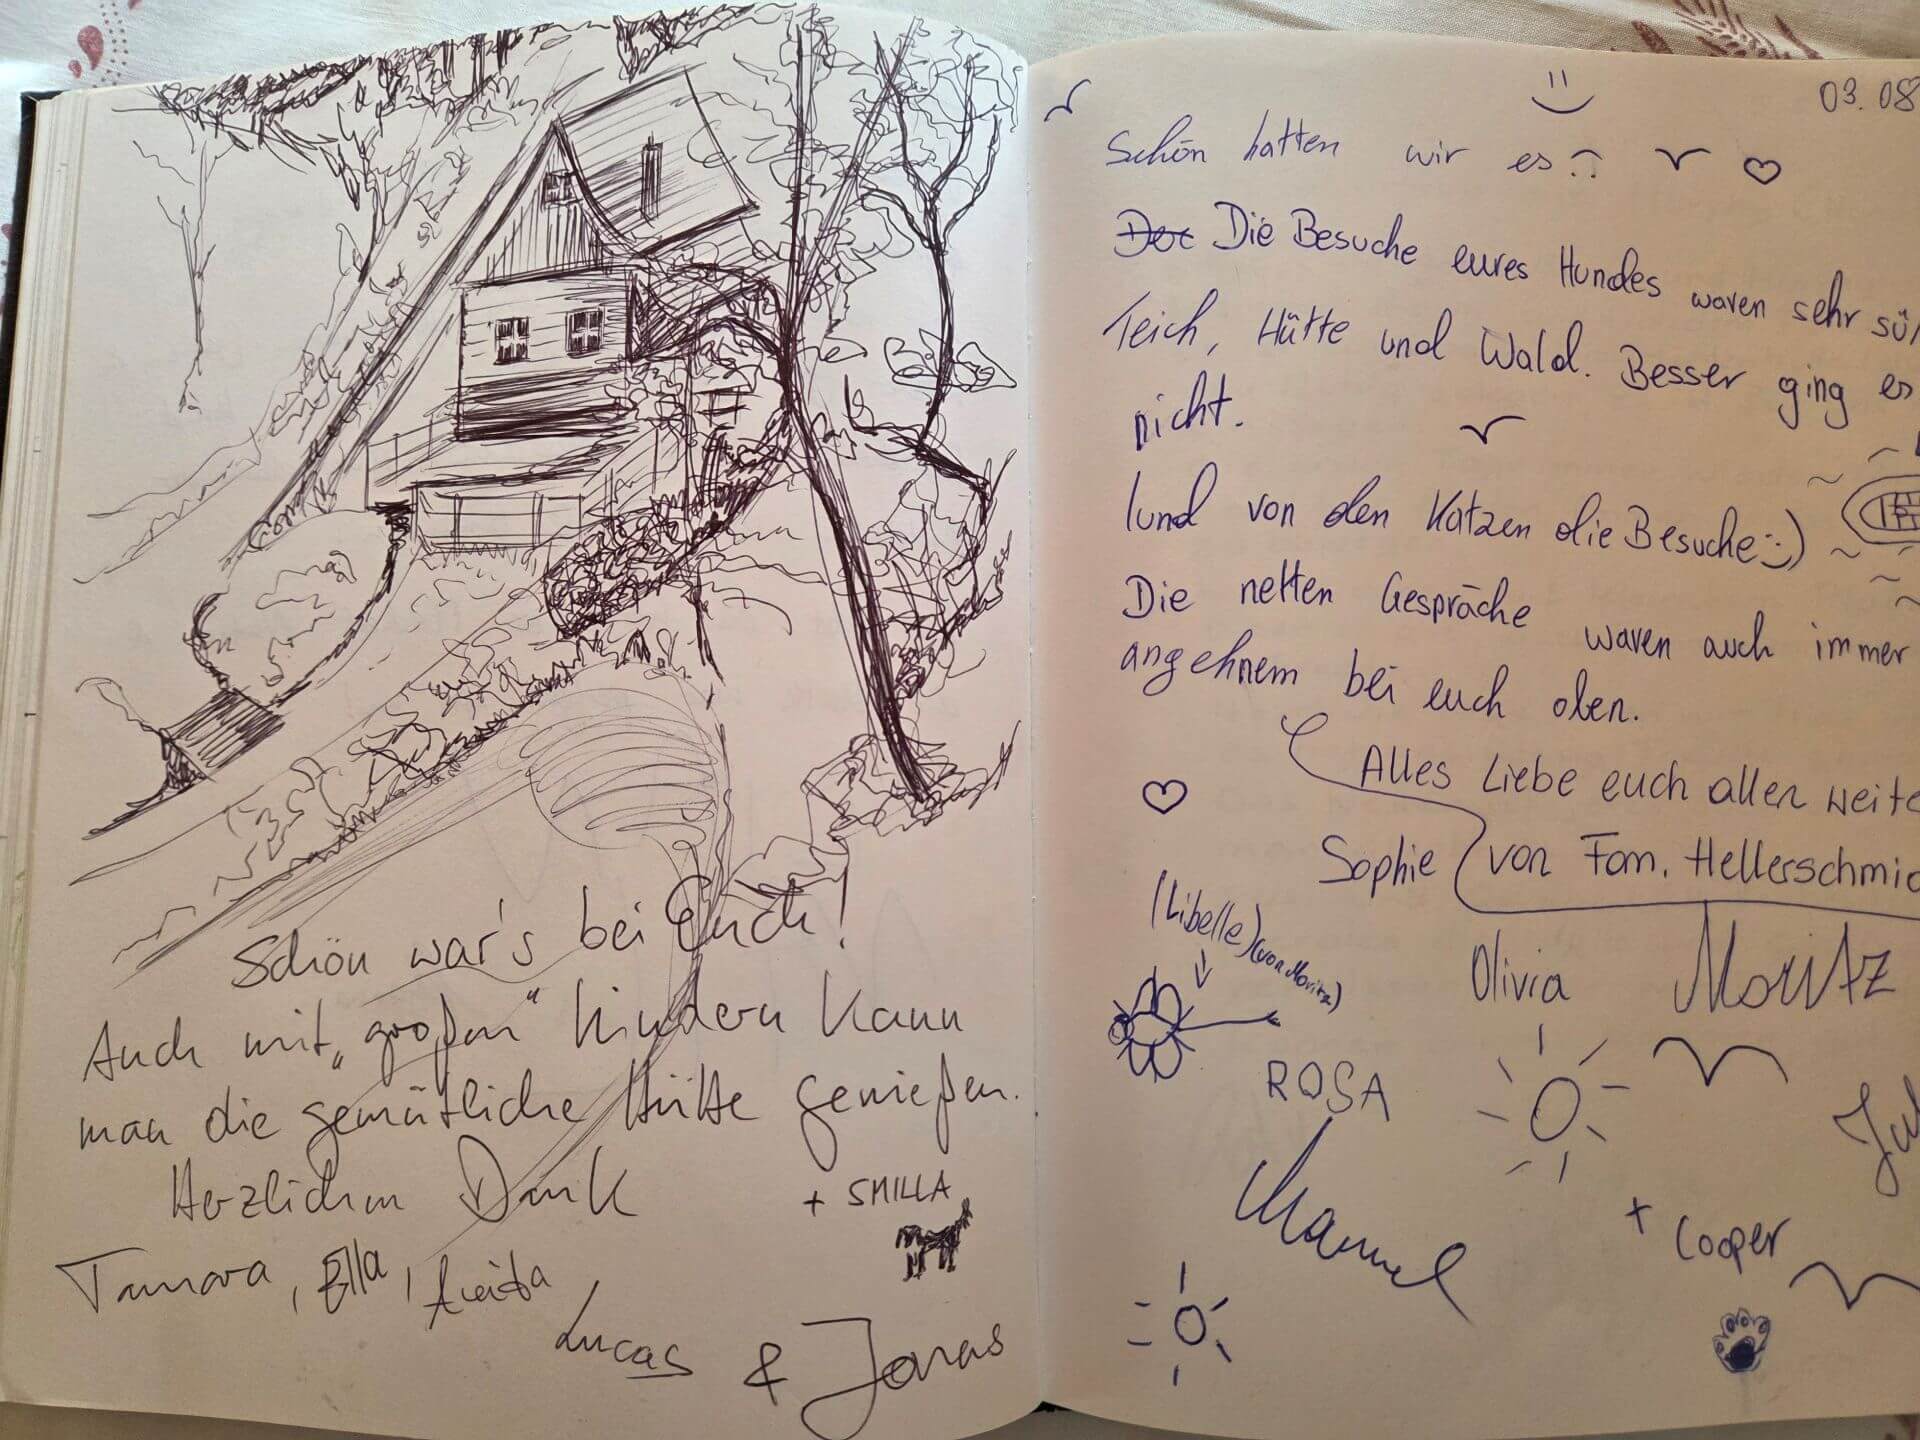 Schön war's bei Euch!
Auch mit „großen“ Kindern kann
man die gemütliche Hütte genießen.
Herzlichen Dank
+ SMILLA
Tamara, Ella,
Lucas & Jonas
03.08
Schön hatten wir es
Der Die Besuche eures Hundes waren sehr
Teich, Hütte und Wald. Besser ging es
nicht.
(und von den Katzen die Besuche :))
Die netten Gespräche waren auch immer
angehnem bei euch oben.
Alles Liebe euch allen
Sophie von Fam.
(Libelle) (von Moritz)
Olivia Moritz
ROSA
Manuel
+ Cooper